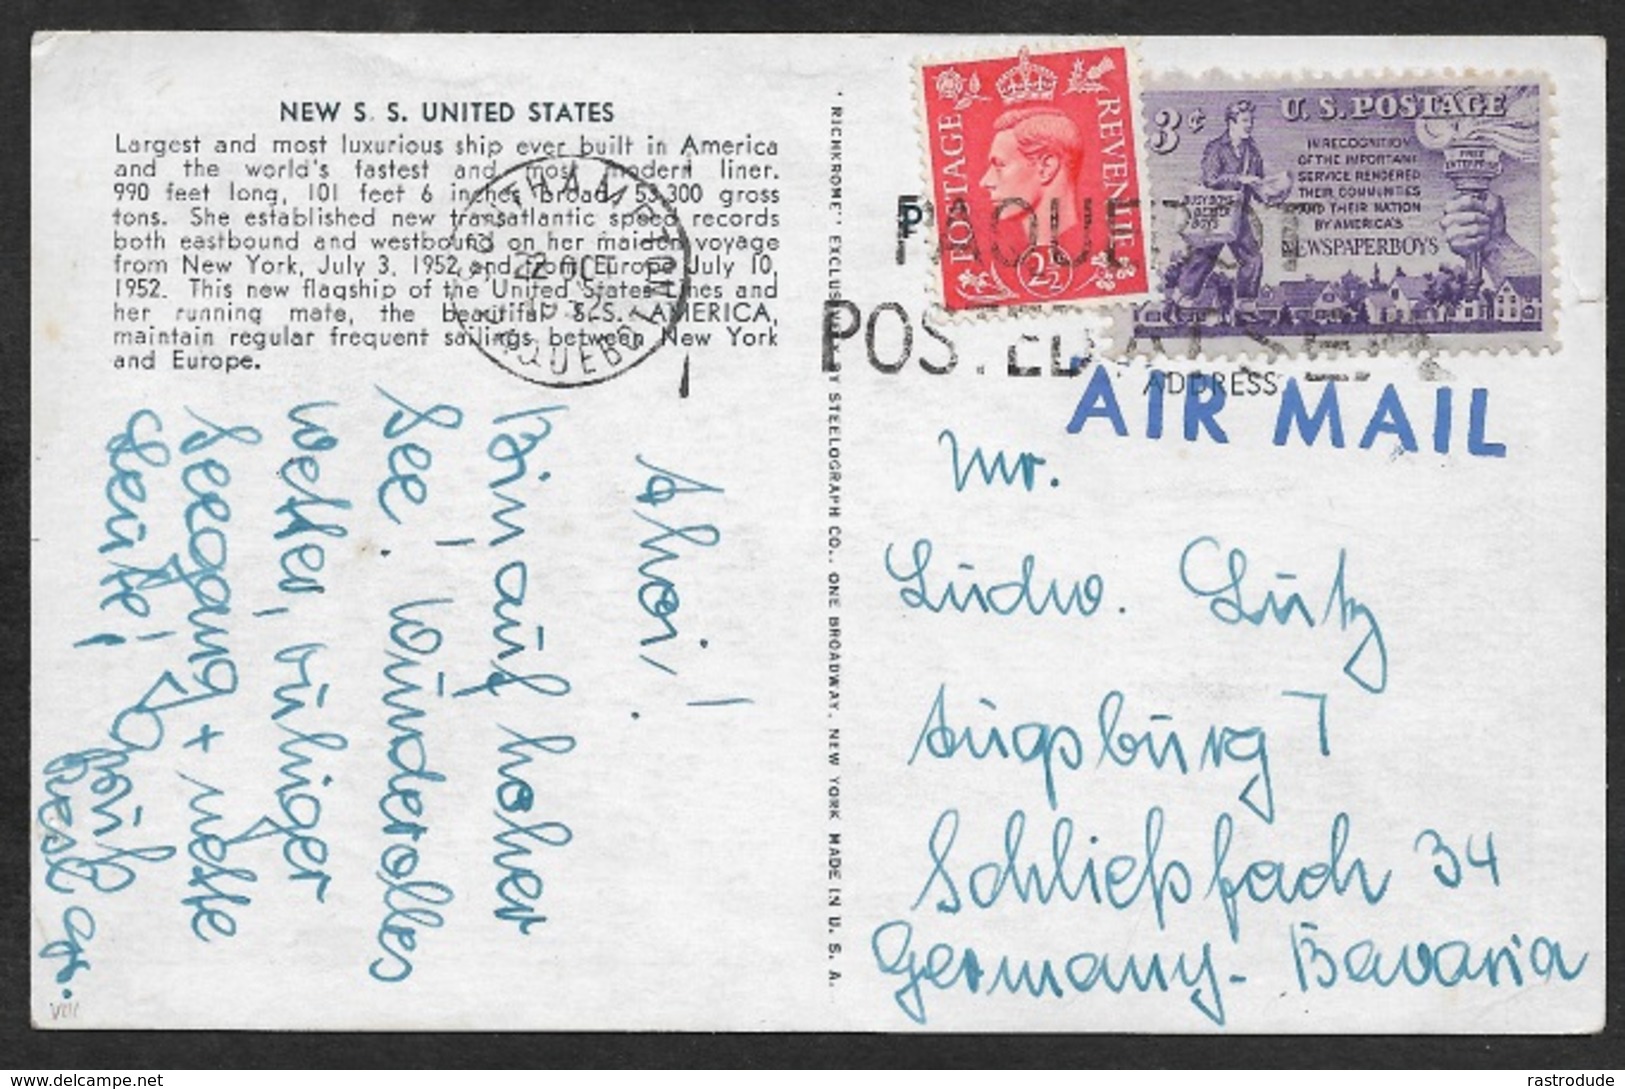 NEW S. S. UNITED STATES
Largest and most luxurious ship ever built in America
and the world's fastest and most modern liner.
990 feet long, 101 feet 6 inches broad, 53,300 gross
tons. She established new transatlantic speed records
both eastbound and westbound on her maiden voyage
from New York, July 3, 1952 and from Europe July 10,
1952. This new flagship of the United States Lines and
her running mate, the beautiful S.S. AMERICA,
maintain regular frequent sailings between New York
and Europe.
SOUTHAMPTON
22 OC
PAQUEBOT
Ahoi!
Bin auf hoher
See! Wundervolles
Wetter, ruhiger
Seegang + nette
Leute!
Best gr.
VIII
"RICHKROME" EXCLUSIVE BY STEELOGRAPH CO., ONE BROADWAY, NEW YORK MADE IN U. S. A.
POSTAGE REVENUE
2½
3¢ U.S. POSTAGE
IN RECOGNITION
OF THE IMPORTANT
SERVICE RENDERED
THEIR COMMUNITIES
AND THEIR NATION
BY AMERICA'S
NEWSPAPERBOYS
BUSY BOYS
BETTER
BOYS
FREE
ENTERPRISE
PAQUEBOT
POSTED AT SEA
ADDRESS
AIR MAIL
Mr.
Ludw. Lutz
Augsburg 7
Schließfach 34
Germany - Bavaria
www.delcampe.net
rastrodude